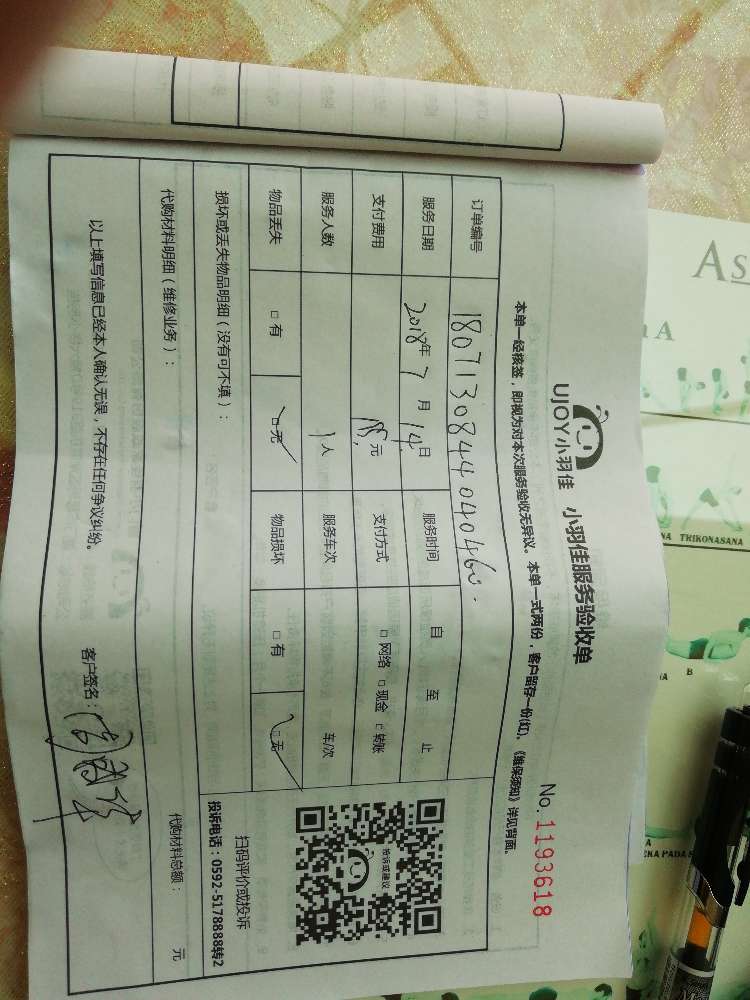 UJOY小羽佳 小羽佳服务验收单
No. 1193618
本单一经核签，即视为对本次服务验收无异议。本单一式两份，客户留存一份(红)。《维保须知》详见背面。
订单编号
服务日期 2018年 7 月 14日 服务时间 自 至 止
支付费用 元 支付方式 □网络 □现金 □转账
服务人数 1人 服务车次 车/次
物品丢失 □有 □无 物品损坏 □有 □无
损坏或丢失物品明细（没有可不填）：
代购材料明细（维修业务）：
代购材料总额： 元
以上填写信息已经本人确认无误，不存在任何争议纠纷。
客户签名：
投诉或建议
扫码评价或投诉
投诉电话：0592-5178888转2
As
A
NA TRIKONASANA
B
EKA PADA